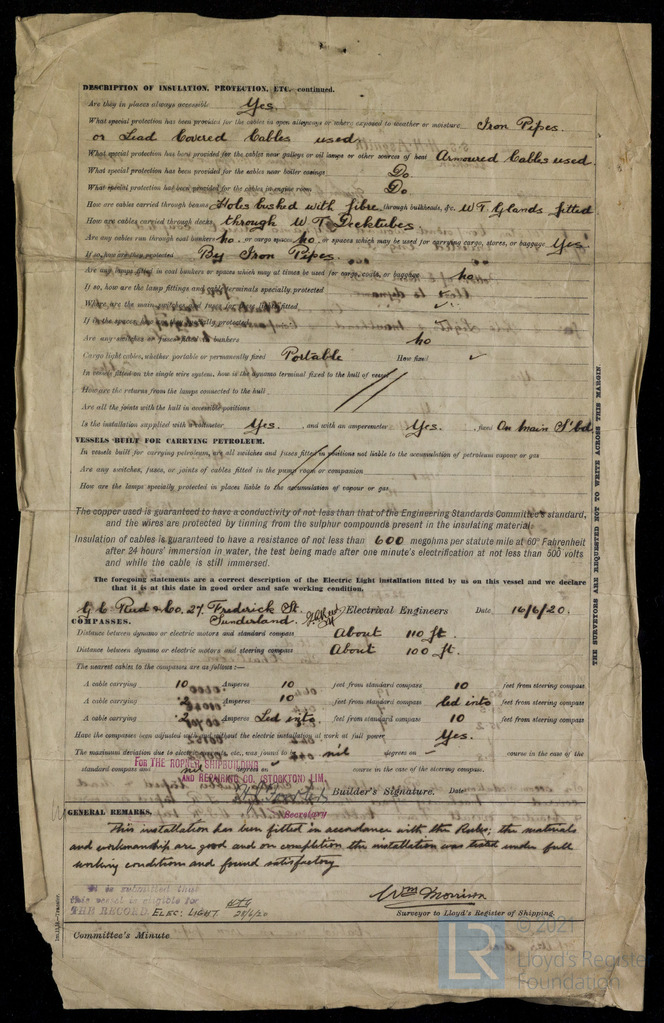 DESCRIPTION OF INSULATION, PROTECTION, ETC. continued.
Are they in places always accessible Yes.
What special protection has been provided for the cables in open alleyways or where exposed to weather or moisture Iron Pipes.
or Lead Covered Cables used
What special protection has been provided for the cables near galleys or oil lamps or other sources of heat Armoured Cables used.
What special protection has been provided for the cables near boiler casings Do
What special protection has been provided for the cables in engine room Do
How are cables carried through beams Holes bushed with fibre, through bulkheads, &c. W T Glands fitted
How are cables carried through decks through W T Decktubes
Are any cables run through coal bunkers no or cargo spaces no or spaces which may be used for carrying cargo, stores, or baggage Yes
If so, how are they protected By Iron Pipes.
Are any lamps fitted in coal bunkers or spaces which may at times be used for cargo, coals, or baggage no
If so, how are the lamp fittings and cable terminals specially protected
Where are the main switches and fuses for these lights fitted
If in the spaces, how are they specially protected
Are any switches or fuses fitted in bunkers no
Cargo light cables, whether portable or permanently fixed Portable How fixed ✓
In vessels fitted on the single wire system, how is the dynamo terminal fixed to the hull of vessel
How are the returns from the lamps connected to the hull
Are all the joints with the hull in accessible positions
Is the installation supplied with a voltmeter Yes. , and with an amperemeter Yes. , fixed On Main S'bd
VESSELS BUILT FOR CARRYING PETROLEUM.
In vessels built for carrying petroleum, are all switches and fuses fitted in positions not liable to the accumulation of petroleum vapour or gas
Are any switches, fuses, or joints of cables fitted in the pump room or companion
How are the lamps specially protected in places liable to the accumulation of vapour or gas
The copper used is guaranteed to have a conductivity of not less than that of the Engineering Standards Committee's standard,
and the wires are protected by tinning from the sulphur compounds present in the insulating material.
Insulation of cables is guaranteed to have a resistance of not less than 600 megohms per statute mile at 60° Fahrenheit
after 24 hours' immersion in water, the test being made after one minute's electrification at not less than 500 volts
and while the cable is still immersed.
The foregoing statements are a correct description of the Electric Light installation fitted by us on this vessel and we declare
that it is at this date in good order and safe working condition.
G C Reid & Co. 27, Frederick St. Electrical Engineers Date 16/6/20.
Sunderland.
COMPASSES.
Distance between dynamo or electric motors and standard compass About 110 ft.
Distance between dynamo or electric motors and steering compass About 100 ft.
The nearest cables to the compasses are as follows:—
A cable carrying 10 Amperes 10 feet from standard compass 10 feet from steering compass
A cable carrying 2 Amperes 10 feet from standard compass led into feet from steering compass
A cable carrying 2 Amperes Led into feet from standard compass 10 feet from steering compass
Have the compasses been adjusted with and without the electric installation at work at full power Yes.
The maximum deviation due to electric currents, etc., was found to be nil degrees on – course in the case of the
standard compass and nil degrees on – course in the case of the steering compass.
FOR THE ROPNER SHIPBUILDING
AND REPAIRING CO. (STOCKTON) LIM.
Builder's Signature. Date
Secretary
GENERAL REMARKS.
This installation has been fitted in accordance with the Rules, the materials
and workmanship are good and on completion the installation was tested under full
working condition and found satisfactory
It is submitted that
this vessel is eligible for
THE RECORD. ELEC: LIGHT. 28/6/20
Wm Morrison
Surveyor to Lloyd's Register of Shipping.
Committee's Minute
THE SURVEYORS ARE REQUESTED NOT TO WRITE ACROSS THIS MARGIN.
LR © 2021
Lloyd's Register
Foundation